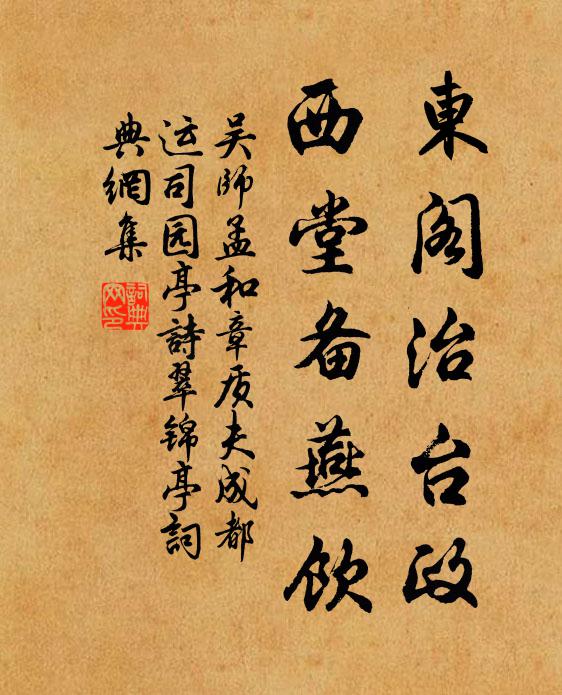 東阁治台政
西堂备燕飲
吴師孟和章质夫成都
运司园亭詩翠锦亭詞
典網集
詞典網印